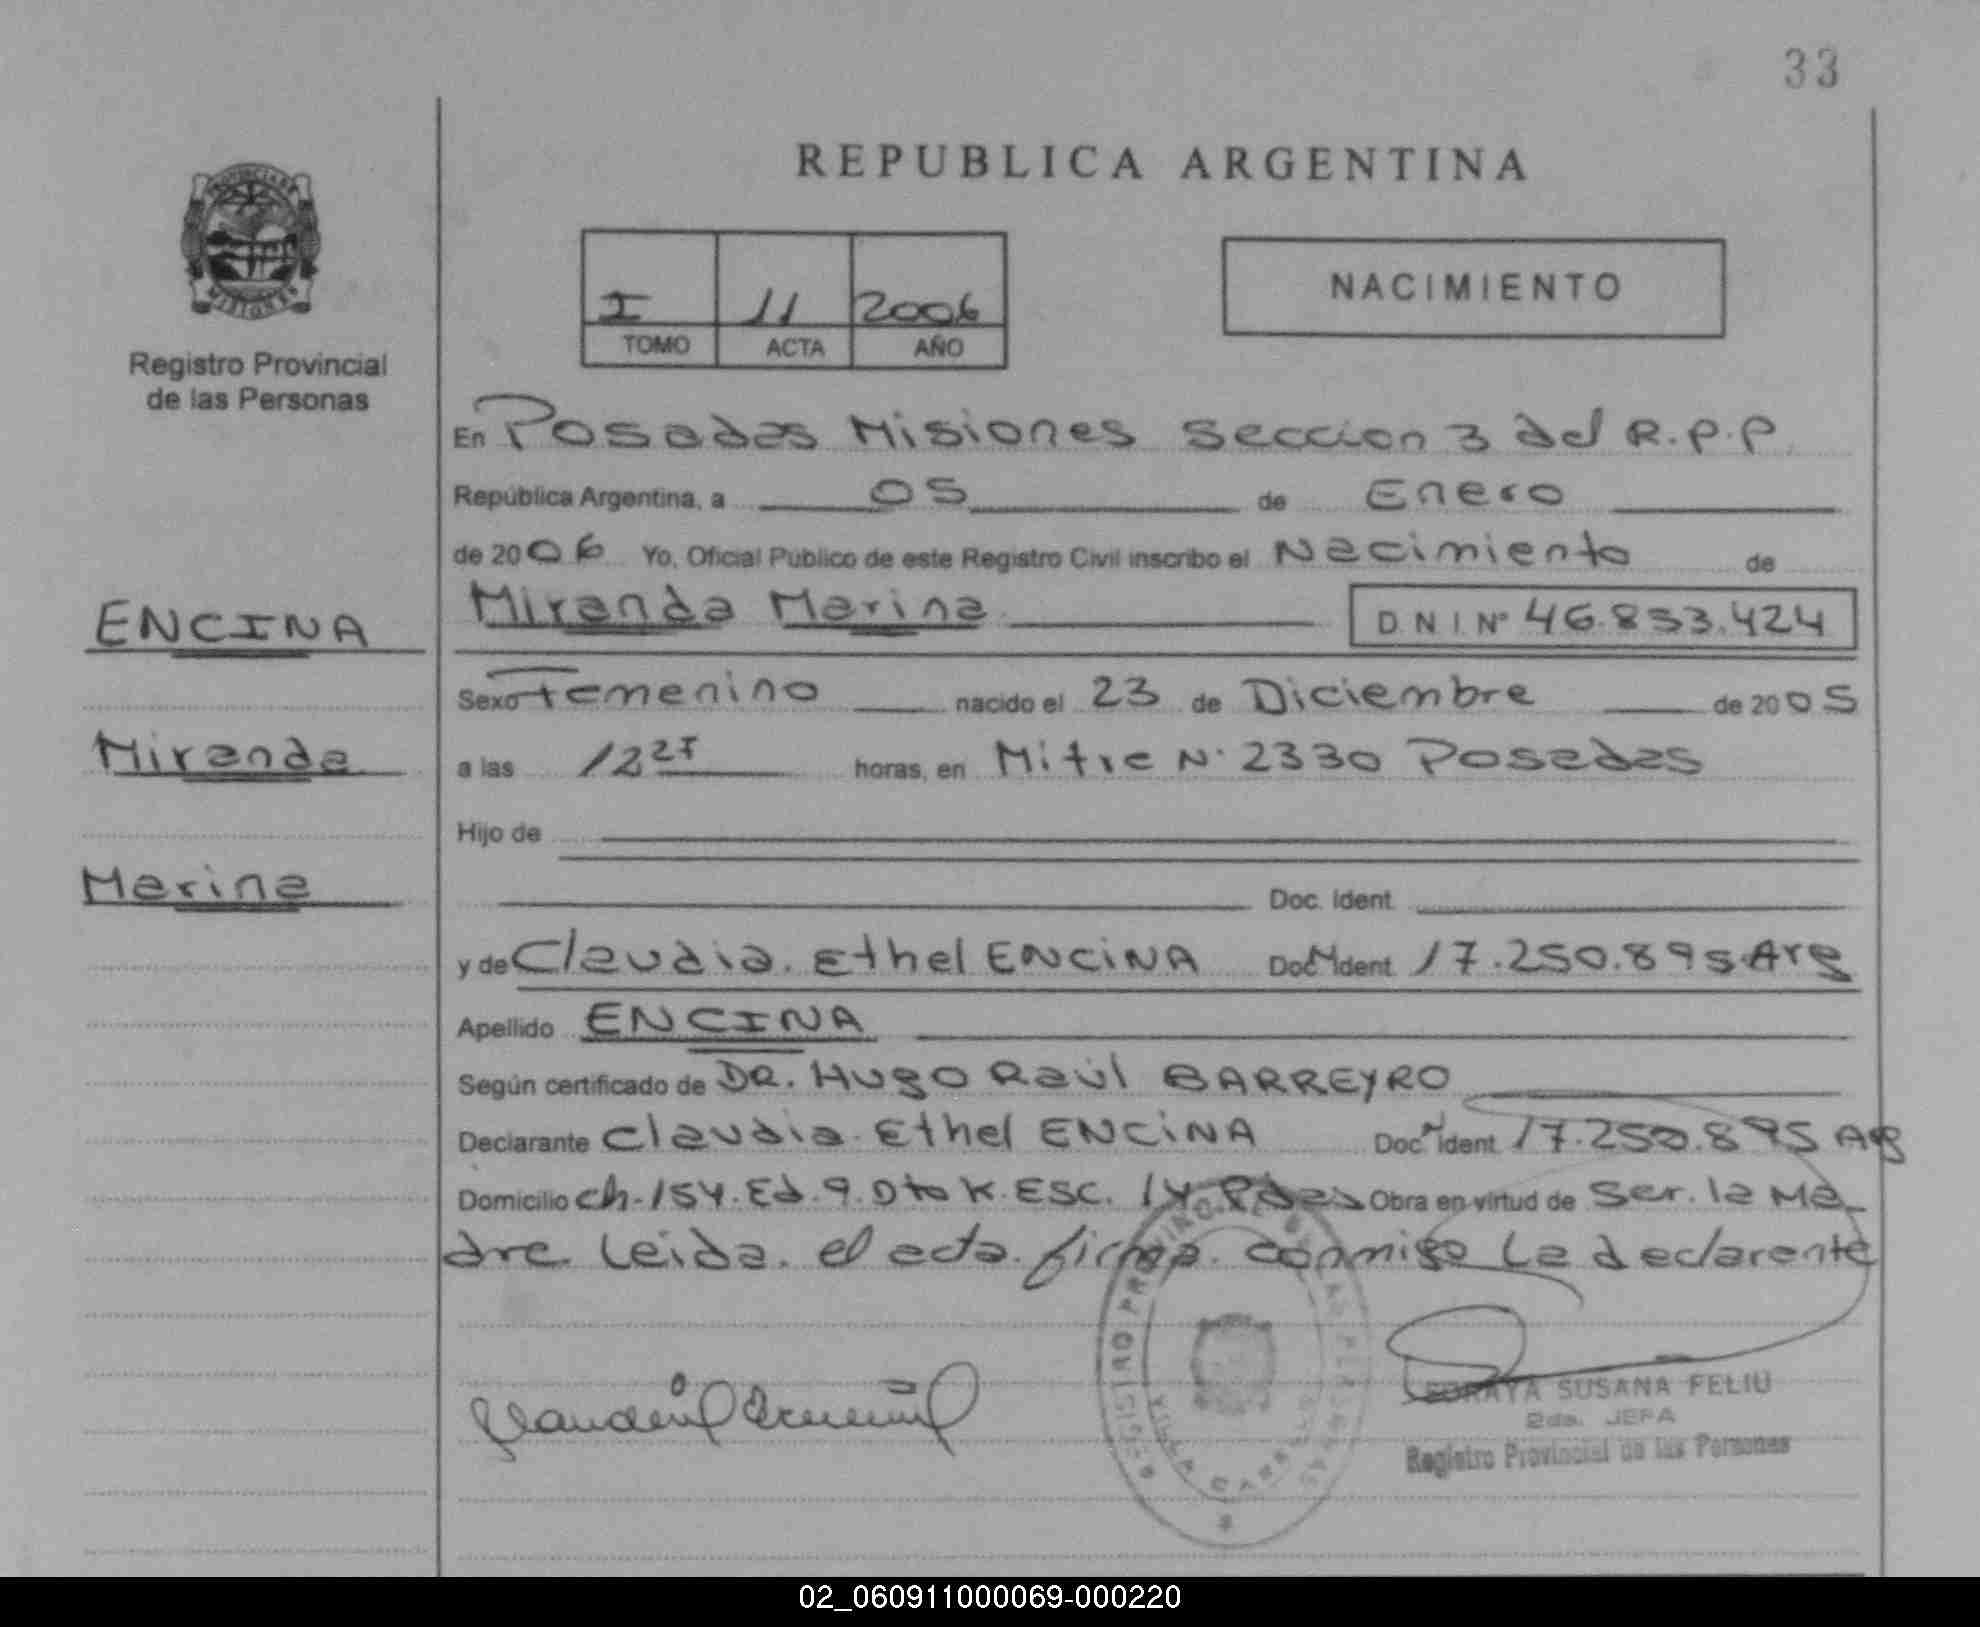 33
REPUBLICA ARGENTINA
I 11 2006
TOMO ACTA AÑO
NACIMIENTO
Registro Provincial
de las Personas
En Posadas Misiones Seccion 3 del R.P.P.
República Argentina, a 05 de Enero
de 2006 Yo, Oficial Público de este Registro Civil inscribo el Nacimiento de
Miranda Marina D N I Nº 46.833.424
ENCINA
Miranda
Marina
Sexo Femenino nacido el 23 de Diciembre de 2005
a las 12 horas, en Mitre N. 2330 Posadas
Hijo de
Doc. Ident.
y de Claudia. Ethel ENCINA Doc. Ident. 17.250.895 Arg
Apellido ENCINA
Según certificado de DR. HUGO Raúl BARREYRO
Declarante Claudia. Ethel ENCINA Doc. Ident. 17.250.895 Arg
Domicilio ch. 154. Ed. 9. Dto K. ESC. 14 Pdas Obra en virtud de Ser. la Ma_
dre. Leida. el acta. firma. conmigo La declarente
SORAYA SUSANA FELIU
2da. JEFA
Registro Provincial de las Personas
02_060911000069-000220